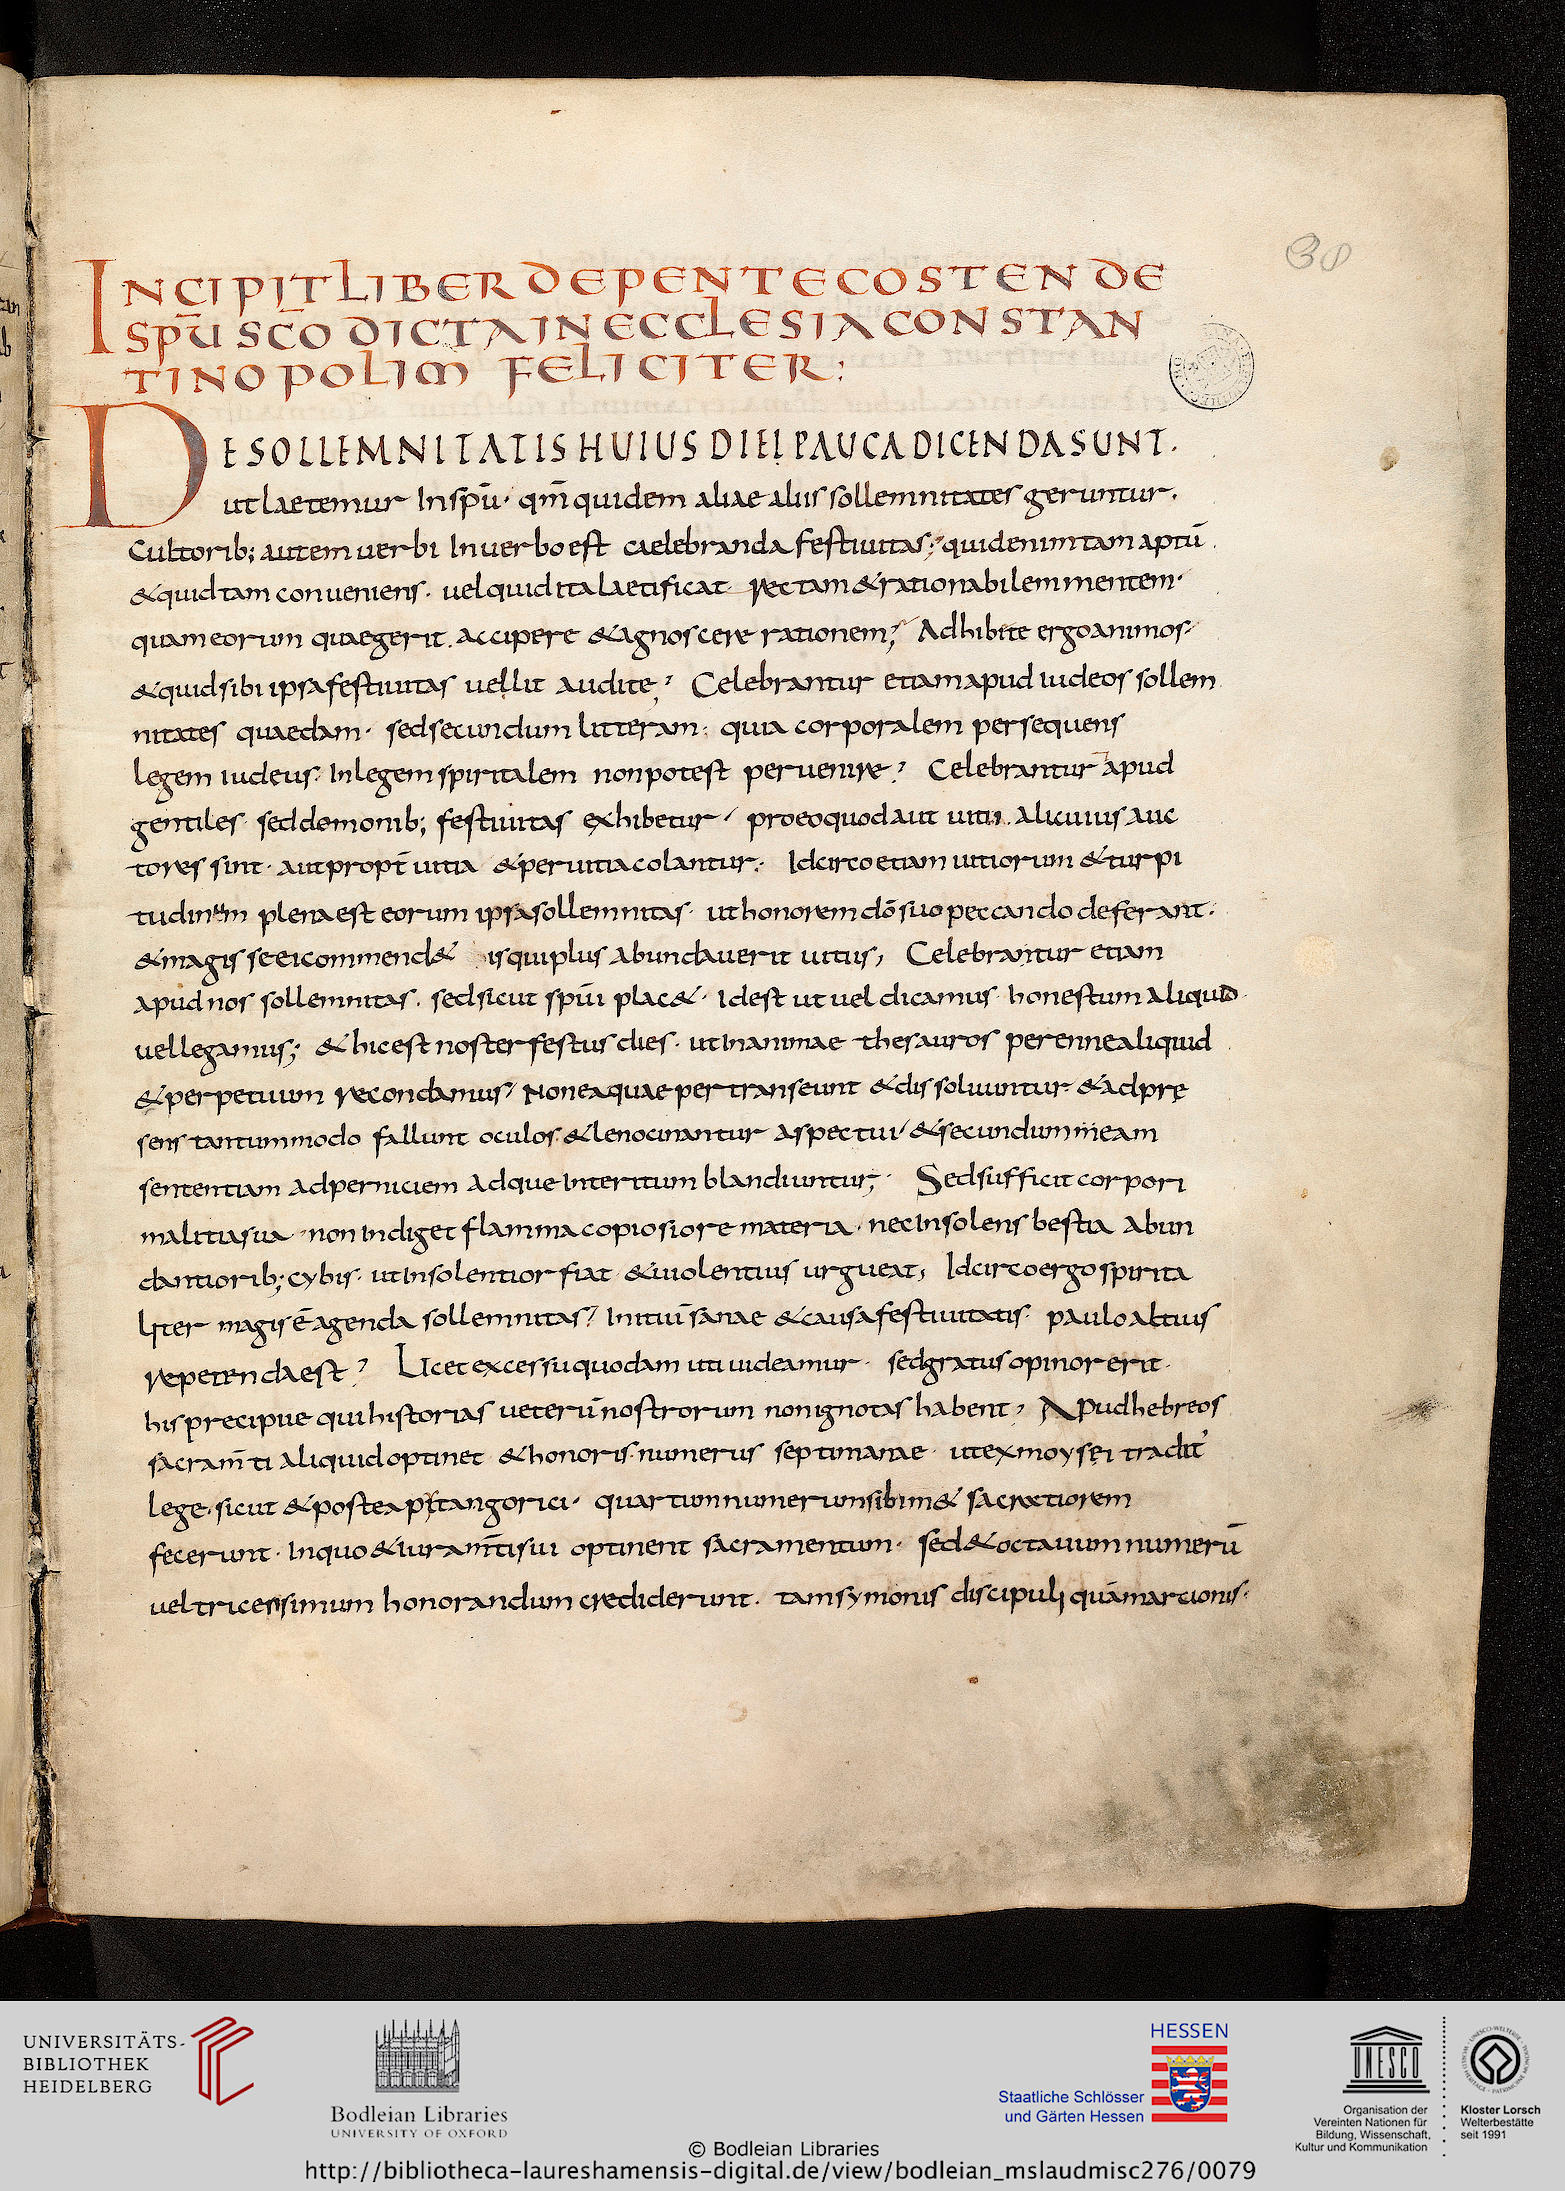 38
INCIPIT LIBER DE PENTECOSTEN DE
SPŪ SCO DICTA IN ECCLESIA CONSTAN
TINOPOLIM FELICITER:
DE SOLLEMNITATIS HUIUS DIEI PAUCA DICENDA SUNT.
ut laetemur In spū· qm̄ quidem aliae aliis sollemnitates geruntur.
Cultorib; autem uerbi In uerbo est caelebranda festiuitas; quid enim tam aptū.
& quid tam conueniens· uel quid ita laetificat rectam & rationabilem mentem·
quam eorum quae gerit. accipere & agnoscere rationem; Adhibite ergo animos·
& quid sibi ipsa festiuitas uellit audite? Celebrantur etiam apud iudeos sollem
nitates quaedam· sed secundum litteram: quia corporalem persequens
legem iudeus· In legem spiritalem non potest peruenire? Celebrantur apud
gentiles· sed demonib; festiuitas exhibetur / pro eo quod aut uitii alicuius auc
tores sint· aut propt̄ uitia & per uitia colantur: Idcirco etiam uitiorum & turpi
tudinum plena est eorum ipsa sollemnitas· ut honorem dō suo peccando deferant·
& magis se ei commend& is qui plus abundauerit uitiis, Celebrantur etiam
apud nos sollemnitas. sed sicut spūi plac&· Id est ut uel dicamus· honestum aliquid
uel legamus; & hic est noster festus dies· ut In animae thesauros perenne aliquid
& perpetuum recondamus / Non ea quae pertranseunt & dissoluuntur & ad prę
sens tantummodo fallunt oculos· & lenocinantur aspectui / & secundum meam
sententiam ad perniciem adque Interitum blandiuntur; Sed sufficit corpori
malitia sua· non Indiget flamma copiosiore materia· nec Insolens bestia abun
dantiorib; cybis· ut Insolentior fiat & uiolentius urgueat, Idcirco ergo spirita
liter magis ē agenda sollemnitas? Initiū sanae & causa festiuitatis· paulo altius
repetenda est? Licet excessu quodam uti uideamur· sed gratus opinor erit·
his precipue qui historias ueterū nostrorum non ignotas habent, Apud hebreos
sacram̄ti aliquid optinet & honoris· numerus septimanae· ut ex moysei tradit'
lege· sicut & postea pitangorici· quartum numerum sibim& sacratiorem
fecerunt· In quo & iuram̄ti sui optinent sacramentum· sed & octauum numerū
uel tricensimum honorandum crediderunt. tam symonis discipuli quā marcionis·
UNIVERSITÄTS-
BIBLIOTHEK
HEIDELBERG
Bodleian Libraries
UNIVERSITY OF OXFORD
HESSEN
Staatliche Schlösser
und Gärten Hessen
UNESCO
Organisation der
Vereinten Nationen für
Bildung, Wissenschaft,
Kultur und Kommunikation
Kloster Lorsch
Welterbestätte
seit 1991
© Bodleian Libraries
http://bibliotheca-laureshamensis-digital.de/view/bodleian_mslaudmisc276/0079